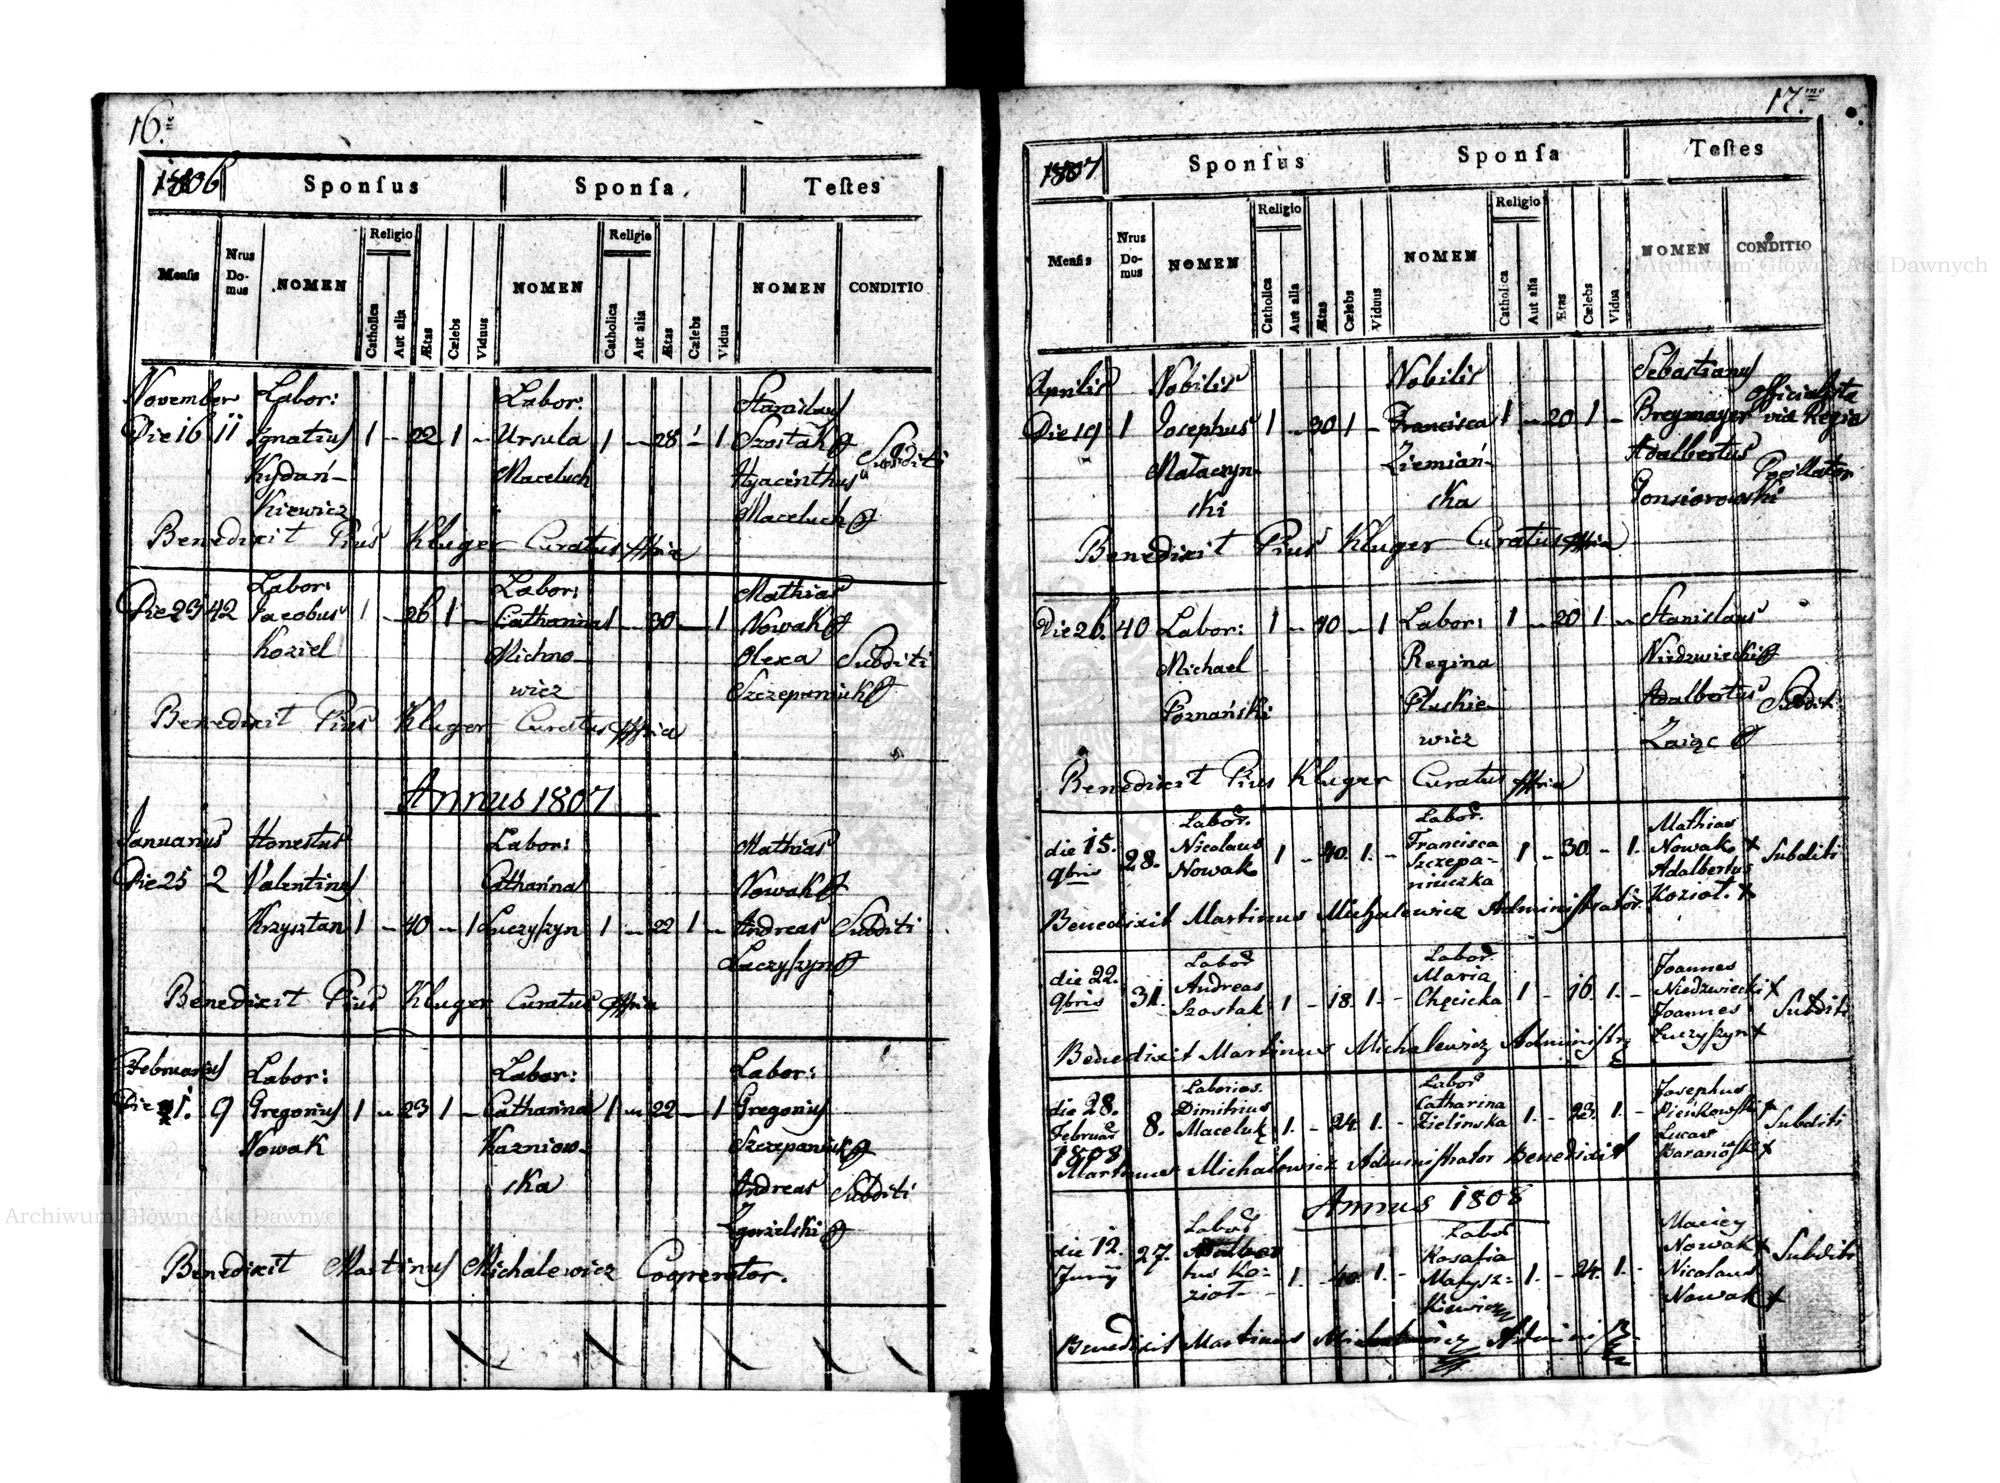 16.
1806 Sponſus Sponſa Teſtes
Menſis Nrus Domus NOMEN Religio Catholica Aut alia Ætas Cælebs Viduus NOMEN Religio Catholica Aut alia Ætas Cælebs Vidua NOMEN CONDITIO
November Labor: Labor: Stanislaus
Die 16 11 Ignatius 1 - 22 1 - Ursula 1 - 28 1 - 1 Szostak
Kydań- Maceluch Hyacinthus Subditi
kiewicz Maceluch
Benedixit Pius Kluger Curatus
Labor: Labor: Mathias
Die 23 42 Jacobus 1 - 26 1 - Catharina 1 - 30 - 1 Nowak
Koziel Michno- Olexa Subditi
wicz Szczepaniuk
Benedixit Pius Kluger Curatus
Annus 1807
Januarius Honestus Labor: Mathias
Die 25 2 Valentinus Catharina Nowak
Krzysztan 1 - 40 - 1 Luczyſzyn 1 - 22 1 - Andreas Subditi
Luczyſzyn
Benedixit Pius Kluger Curatus
Februarius Labor: Labor: Labor:
Die 1. 9 Gregorius 1 - 23 1 - Catharina 1 - 22 - 1 Gregorius
Nowak Kazniow- Szczepaniuk
ska Andreas Subditi
Zgorzelski
Benedixit Martinus Michalewicz Cooperator.
17.mo
1807 Sponſus Sponſa Teſtes
Menſis Nrus Domus NOMEN Religio Catholica Aut alia Ætas Cælebs Viduus NOMEN Religio Catholica Aut alia Ætas Cælebs Vidua NOMEN CONDITIO
Aprilis Nobilis Nobilis Sebastianus Officialista
Die 19 1 Josephus 1 - 30 1 - Francisca 1 - 20 1 - Breymayer via Regia
Małaczyn- Ziemiań- Adalbertus Pocillator
ski ska Ponsiorowski
Benedixit Pius Kluger Curatus
Die 26. 40 Labor: 1 - 40 - 1 Labor: 1 - 20 1 - Stanislaus
Michael Regina Niedzwiecki
Poznański Pluskie- Adalbertus Subditi
wicz Zaiąc
Benedixit Pius Kluger Curatus
Labor. Labor. Mathias
die 15. 28. Nicolaus 1 - 40. 1. - Francisca 1 - 30. - 1. Nowak x Subditi
9bris Nowak Szczepa- Adalbertus
niuczka Kozioł. x
Benedixit Martinus Michalewicz Administrator.
Labor Labor Joannes
die 22. 31. Andreas 1 - 18. 1. - Maria 1 - 16. 1. - Niedzwiecki x Subditi
9bris Szostak Chęcicka Joannes
Łuczyſzyn x
Benedixit Martinus Michalewicz Administr
Laborios. Labor Josephus
die 28. 8. Dimitrius 1. - 24. 1. - Catharina 1. - 23. 1. - Pieńkowski x Subditi
Februar Maceluk Zielinska Lucas
1808 Baranoſki x
Martinus Michalewicz Administrator Benedixit
Annus 1808
Labor Labor Maciey
die 12. 27. Adalber 1. - 40. 1. - Rosalia 1. - 24. 1. - Nowak x Subditi
Junij tus Ko= Matysz= Nicolaus
zioł kiewicz Nowak x
Benedixit Martinus Michalewicz Admini
Archiwum Główne Akt Dawnych
Archiwum Główne Akt Dawnych